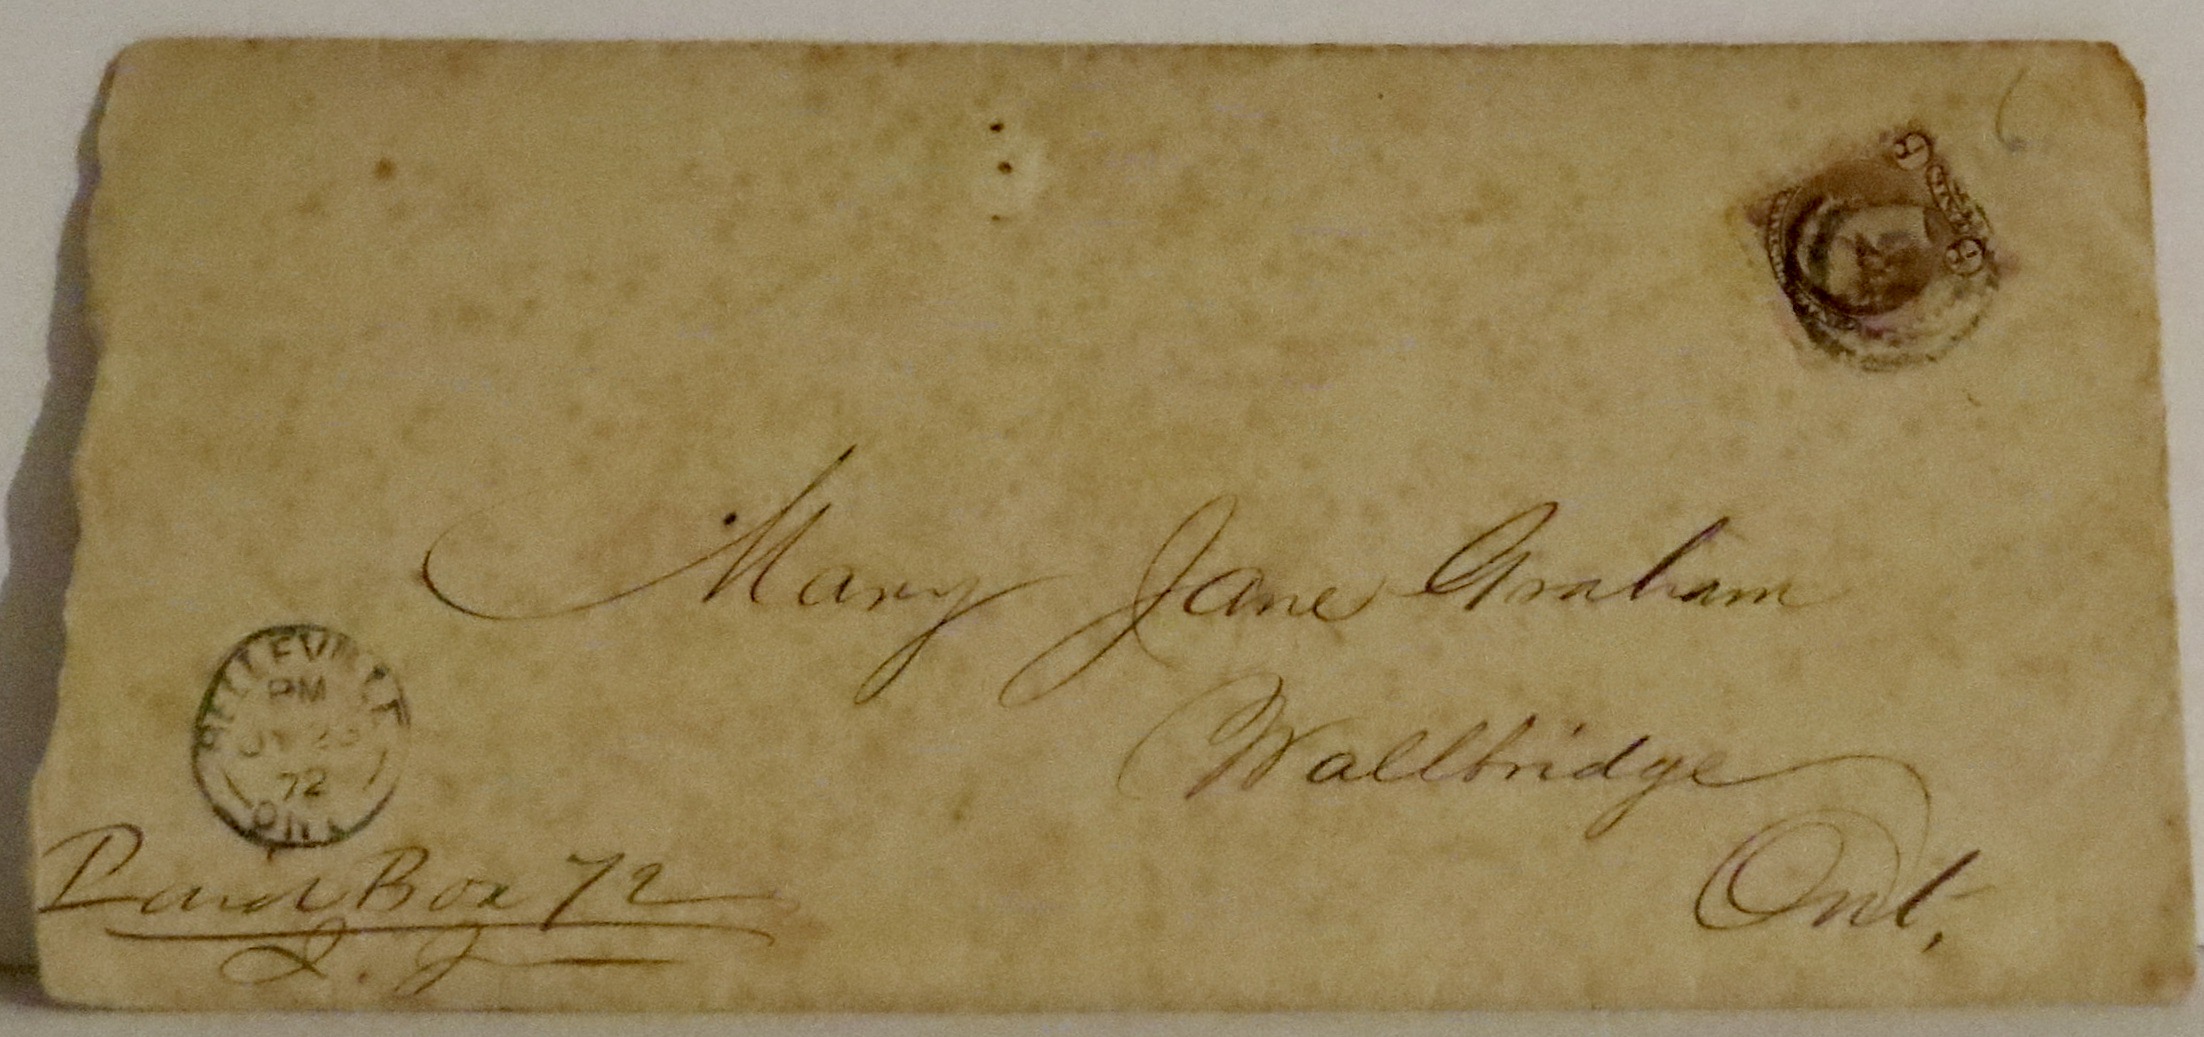 Mary Jane Graham
Wallbridge
Ont.
BELLEVILLE
PM
72
ONT
Paid Box 72